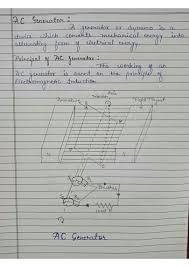 AC Generator :
A generator or dynamo is a
device which converts mechanical energy into
alternating form of electrical energy.
Principal of AC Generator :
The working of an
AC generator is based on the principle of
Electromagnetic Induction.
Armature
Axis
N
S
Brushes
Load R
AC Generator